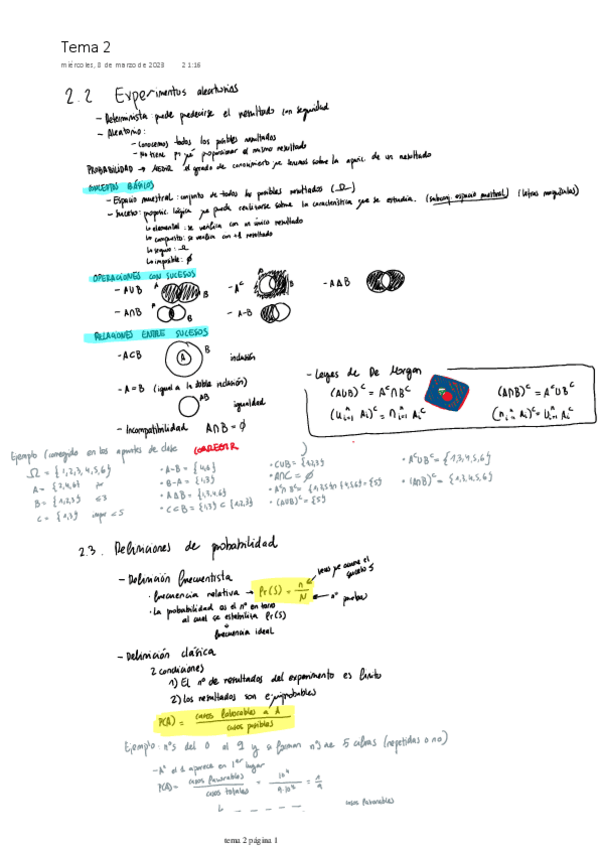 Tema 2
miércoles, 8 de marzo de 2023 21:16
2.2 Experimentos aleatorios
- Determinista: puede predecirse el resultado con seguridad
- Aleatorio:
- Conocemos todos los posibles resultados
- No tiene pq proporcionar el mismo resultado
PROBABILIDAD → MEDIR el grado de conocimiento que tenemos sobre la aparic. de un resultado
CONCEPTOS BÁSICOS
- Espacio muestral: conjunto de todos los posibles resultados (Ω)
- Suceso: propos. lógica que puede realizarse sobre la característica que se estudia. (subconj. espacio muestral) (letras mayúsculas)
↳ elemental: se verifica con un único resultado
↳ compuesto: se verifica con +1 resultado
↳ seguro: Ω
↳ imposible: ∅
OPERACIONES CON SUCESOS
- A∪B A B - Aᶜ A B - A∆B
- A∩B A B - A-B
RELACIONES ENTRE SUCESOS
- A⊂B A B inclusión
- A=B (igual a la doble inclusión) AB igualdad
- Incompatibilidad A∩B = ∅
- Leyes de De Morgan
(A∪B)ᶜ = Aᶜ∩Bᶜ (A∩B)ᶜ = Aᶜ∪Bᶜ
(∪ᵢ₌₁ⁿ Aᵢ)ᶜ = ∩ᵢ₌₁ⁿ Aᵢᶜ (∩ᵢ₌₁ⁿ Aᵢ)ᶜ = ∪ᵢ₌₁ⁿ Aᵢᶜ
Ejemplo (corregido en los apuntes de clase CORREGIR )
Ω = {1,2,3,4,5,6} • A-B = {4,6} • C∪B = {1,2,3} • Aᶜ∪Bᶜ = {1,3,4,5,6}
A = {2,4,6} par • B-A = {1,3} • A∩C = ∅ • (A∩B)ᶜ = {1,3,4,5,6}
B = {1,2,3} ≤3 • A∆B = {1,3,4,6} • Aᶜ∩Bᶜ = {1,3,5}∩{4,5,6} = {5}
C = {1,3} impar <5 • C⊂B = {1,3} ⊂ {1,2,3} • (A∪B)ᶜ = {5}
2.3. Definiciones de probabilidad
- Definición frecuentista
• frecuencia relativa → Pr(S) = n/N veces que ocurre el suceso S
nº pruebas
• La probabilidad es el nº en torno
al cual se estabiliza Pr(S)
frecuencia ideal
- Definición clásica
2 condiciones
1) El nº de resultados del experimento es finito
2) los resultados son equiprobables
P(A) = casos favorables a A / casos posibles
Ejemplo: nºs del 0 al 9 y se forman nºs de 5 cifras (repetidas o no)
- A: el 1 aparece en 1er lugar
P(A) = casos favorables / casos totales = 10⁴ / 9·10⁴ = 1/9
casos favorables
tema 2 página 1